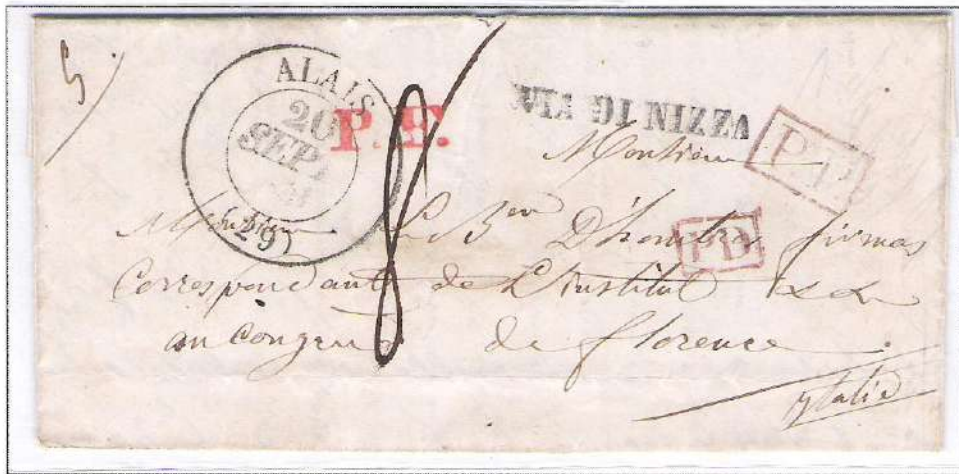 ALAIS
20
SEPT
(29)
P.P.
VIA DI NIZZA
P.P.
Monsieur
Monsieur Le Bon D'hombres firmas
P.D.
Correspondant de L'institut
au Congrès de florence
ytalie
8
5